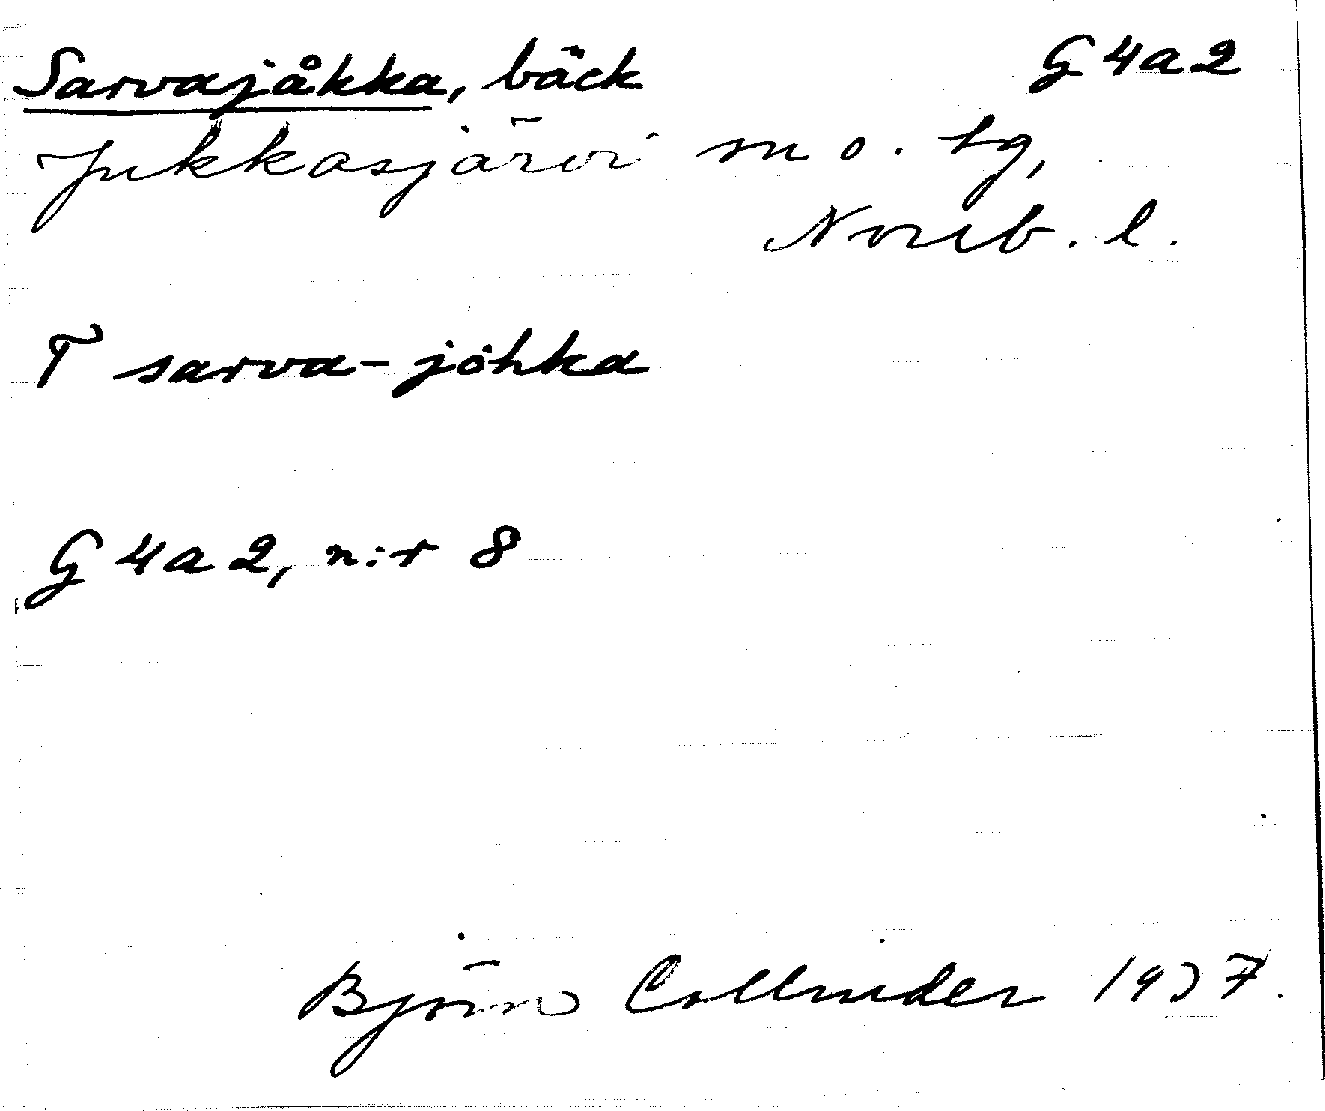 Sarvajåkka, bäck G4a2
Jukkasjärvi sn o. tg,
Norrb. l.
T sarva-jöhka
G4a2, n:r 8
Björn Collinder 1937.